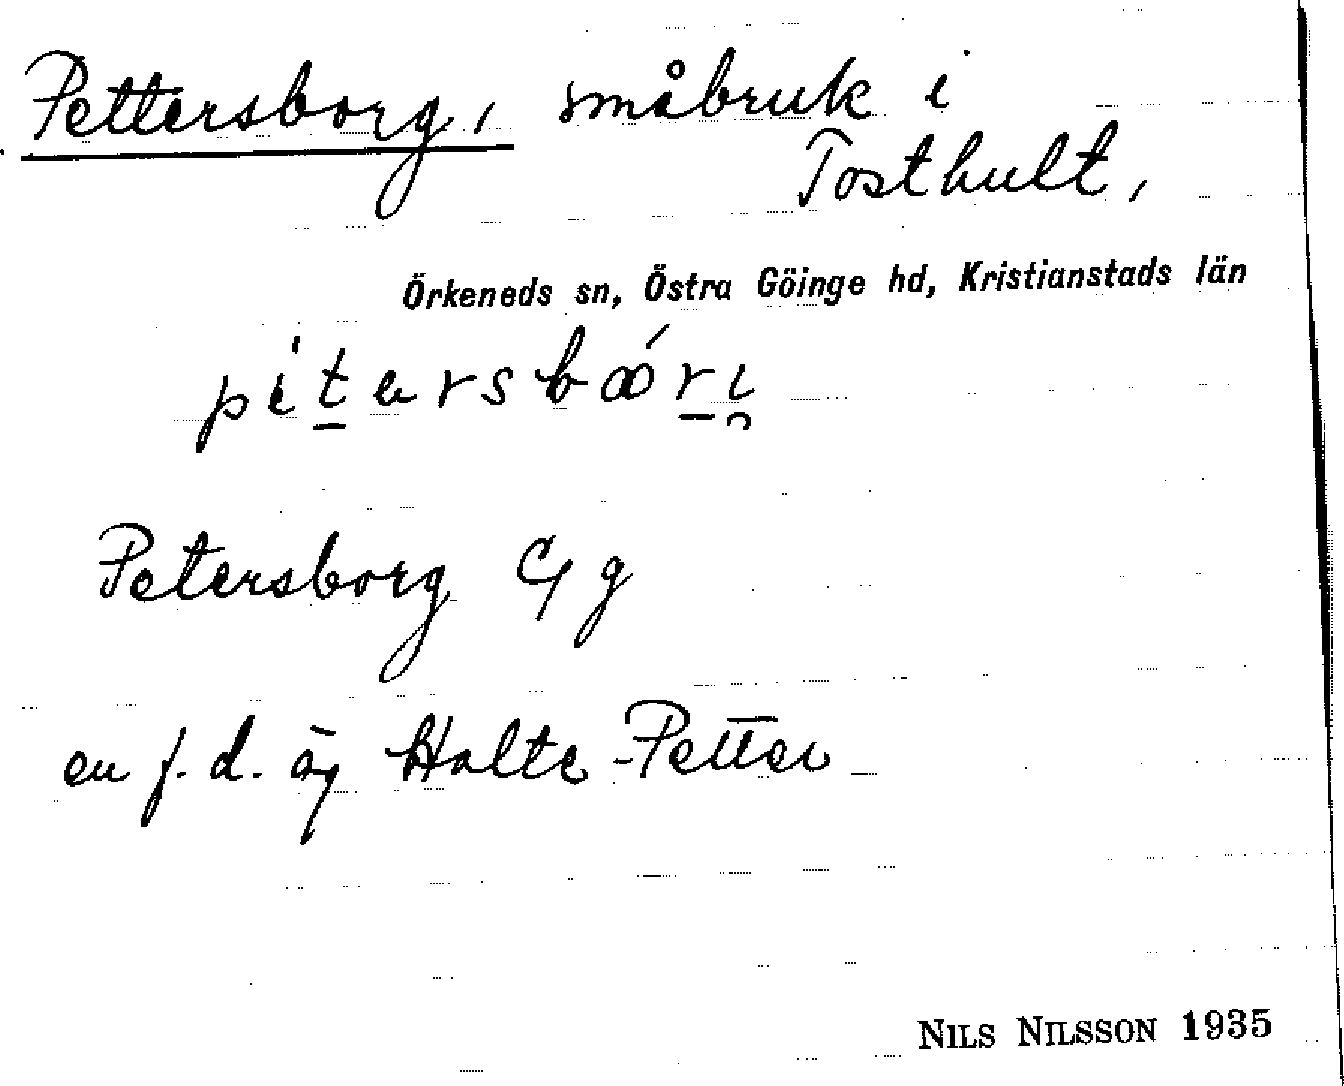 Pettersborg, småbruk i
Tosthult,
Örkeneds sn, Östra Göinge hd, Kristianstads län
Petersborg Gg
en f. d. äg Halte-Petter
NILS NILSSON 1935